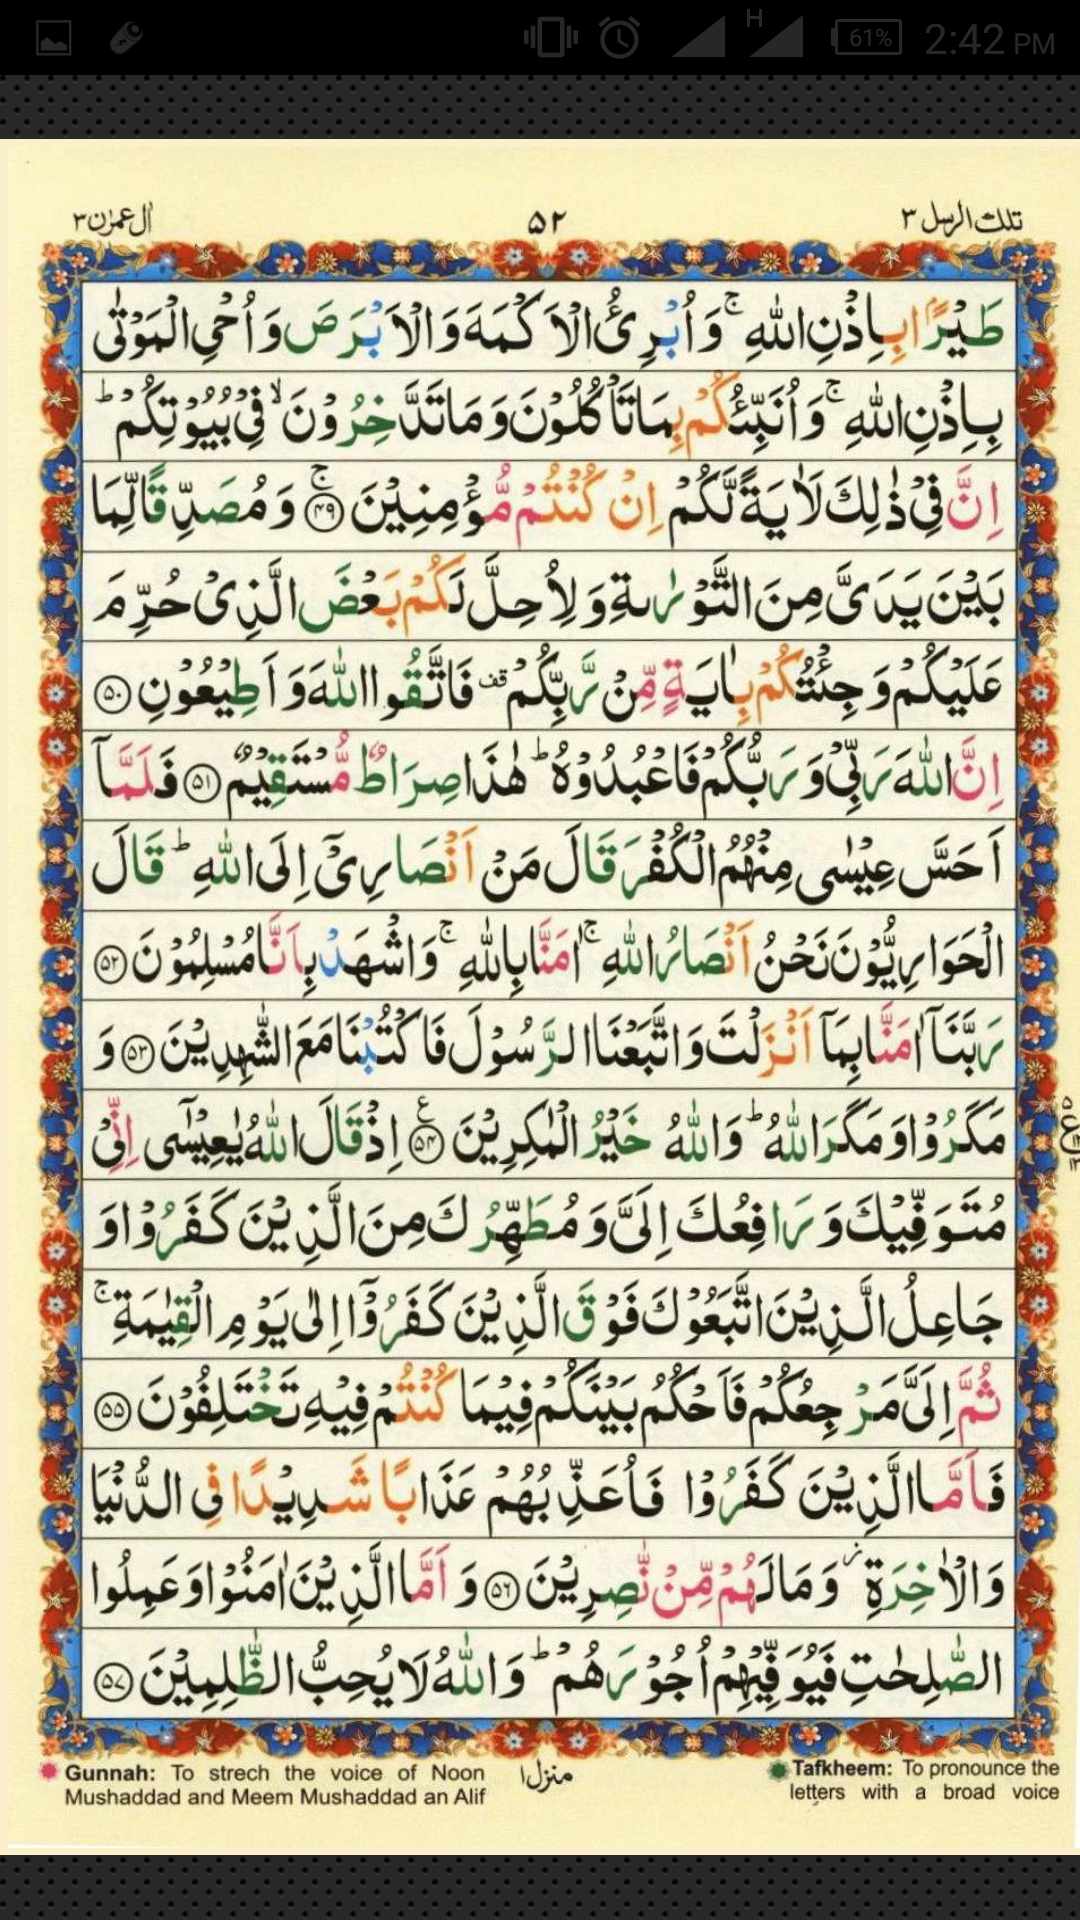 H
61%
2:42 PM
تلك الرسل ٣
٥٢
اٰل عمرٰن ٣
طَيْرًۢا بِاِذْنِ اللّٰهِ ۚ وَ اُبْرِئُ الْاَكْمَهَ وَ الْاَبْرَصَ وَ اُحْيِ الْمَوْتٰى
بِاِذْنِ اللّٰهِ ۚ وَ اُنَبِّئُكُمْ بِمَا تَاْكُلُوْنَ وَ مَا تَدَّخِرُوْنَ ۙ فِيْ بُيُوْتِكُمْ ؕ
اِنَّ فِيْ ذٰلِكَ لَاٰيَةً لَّكُمْ اِنْ كُنْتُمْ مُّؤْمِنِيْنَ ۚ ﴿۴۹﴾ وَ مُصَدِّقًا لِّمَا
بَيْنَ يَدَيَّ مِنَ التَّوْرٰىةِ وَ لِاُحِلَّ لَكُمْ بَعْضَ الَّذِيْ حُرِّمَ
عَلَيْكُمْ وَ جِئْتُكُمْ بِاٰيَةٍ مِّنْ رَّبِّكُمْ ۫ فَاتَّقُوا اللّٰهَ وَ اَطِيْعُوْنِ ﴿۵۰﴾
اِنَّ اللّٰهَ رَبِّيْ وَ رَبُّكُمْ فَاعْبُدُوْهُ ؕ هٰذَا صِرَاطٌ مُّسْتَقِيْمٌ ﴿۵۱﴾ فَلَمَّاۤ
اَحَسَّ عِيْسٰى مِنْهُمُ الْكُفْرَ قَالَ مَنْ اَنْصَارِيْۤ اِلَى اللّٰهِ ؕ قَالَ
الْحَوَارِيُّوْنَ نَحْنُ اَنْصَارُ اللّٰهِ ۚ اٰمَنَّا بِاللّٰهِ ۚ وَ اشْهَدْ بِاَنَّا مُسْلِمُوْنَ ﴿۵۲﴾
رَبَّنَاۤ اٰمَنَّا بِمَاۤ اَنْزَلْتَ وَ اتَّبَعْنَا الرَّسُوْلَ فَاكْتُبْنَا مَعَ الشّٰهِدِيْنَ ﴿۵۳﴾ وَ
مَكَرُوْا وَ مَكَرَ اللّٰهُ ؕ وَ اللّٰهُ خَيْرُ الْمٰكِرِيْنَ ﴿۵۴﴾ ع اِذْ قَالَ اللّٰهُ يٰعِيْسٰۤى اِنِّيْ
مُتَوَفِّيْكَ وَ رَافِعُكَ اِلَيَّ وَ مُطَهِّرُكَ مِنَ الَّذِيْنَ كَفَرُوْا وَ
جَاعِلُ الَّذِيْنَ اتَّبَعُوْكَ فَوْقَ الَّذِيْنَ كَفَرُوْۤا اِلٰى يَوْمِ الْقِيٰمَةِ ۚ
ثُمَّ اِلَيَّ مَرْجِعُكُمْ فَاَحْكُمُ بَيْنَكُمْ فِيْمَا كُنْتُمْ فِيْهِ تَخْتَلِفُوْنَ ﴿۵۵﴾
فَاَمَّا الَّذِيْنَ كَفَرُوْا فَاُعَذِّبُهُمْ عَذَابًا شَدِيْدًا فِي الدُّنْيَا
وَ الْاٰخِرَةِ ؗ وَ مَا لَهُمْ مِّنْ نّٰصِرِيْنَ ﴿۵۶﴾ وَ اَمَّا الَّذِيْنَ اٰمَنُوْا وَ عَمِلُوا
الصّٰلِحٰتِ فَيُوَفِّيْهِمْ اُجُوْرَهُمْ ؕ وَ اللّٰهُ لَا يُحِبُّ الظّٰلِمِيْنَ ﴿۵۷﴾
Gunnah: To strech the voice of Noon
Mushaddad and Meem Mushaddad an Alif
منزل ١
Tafkheem: To pronounce the
letters with a broad voice